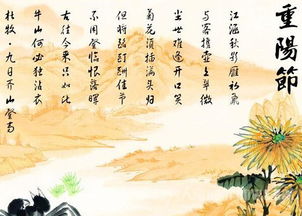 重陽節
江涵秋影雁初飛
与客携壺上翠微
尘世难逢开口笑
菊花須插满头归
但将酩酊酬佳節
不用登临恨落晖
古往今来只如此
牛山何必独沾衣
杜牧·九日齐山登高